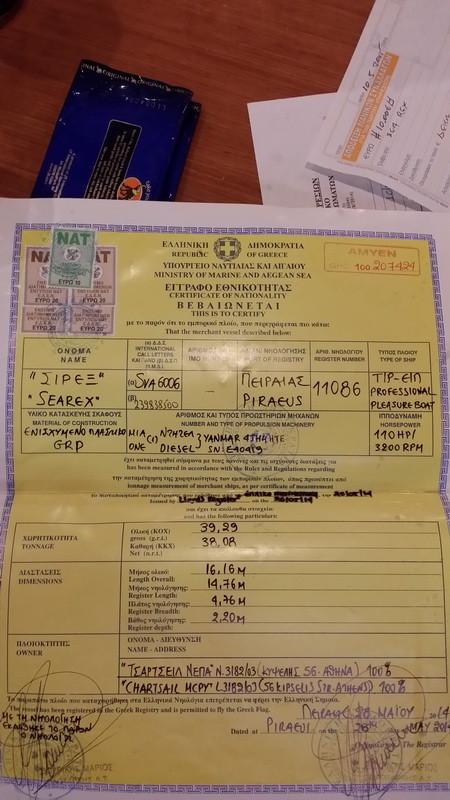 ORIGINAL
ORIGINAL
10.5
ΕΥΡΩ #10.000#
SEA REX
ΕΛΛΗΝΙΚΗ ΔΗΜΟΚΡΑΤΙΑ
REPUBLIC OF GREECE
ΥΠΟΥΡΓΕΙΟ ΝΑΥΤΙΛΙΑΣ ΚΑΙ ΑΙΓΑΙΟΥ
MINISTRY OF MARINE AND AEGEAN SEA
ΕΓΓΡΑΦΟ ΕΘΝΙΚΟΤΗΤΑΣ
CERTIFICATE OF NATIONALITY
ΒΕΒΑΙΩΝΕΤΑΙ
THIS IS TO CERTIFY
ΑΜΥΕΝ
100207424
ΝΑΤ
ΝΑΤ
ΕΥΡΩ 10
ΕΥΡΩ 20
ΕΥΡΩ 20
ΕΥΡΩ 20
ΕΥΡΩ 20
με το παρόν ότι το εμπορικό πλοίο, που περιγράφεται πιο κάτω:
That the merchant vessel described below:
ΟΝΟΜΑ
NAME
(α) Δ.Δ.Σ.
INTERNATIONAL
CALL LETTERS
(M.M.S.I.)
ΑΡΙΘΜΟΣ
ΝΗΟΛΟΓΗΣΗΣ
PORT OF REGISTRY
ΑΡΙΘ. ΝΗΟΛΟΓΙΟΥ
REGISTER NUMBER
ΤΥΠΟΣ ΠΛΟΙΟΥ
TYPE OF SHIP
"ΣΙΡΕΞ"
"SEAREX"
(α) SVA6006
(β) 239838500
-
ΠΕΙΡΑΙΑΣ
PIRAEUS
11086
ΤΠΡ-ΕΙΠ
PROFESSIONAL
PLEASURE BOAT
ΥΛΙΚΟ ΚΑΤΑΣΚΕΥΗΣ ΣΚΑΦΟΥΣ
MATERIAL OF CONSTRUCTION
ΑΡΙΘΜΟΣ ΚΑΙ ΤΥΠΟΣ ΠΡΟΩΣΤΗΡΙΩΝ ΜΗΧΑΝΩΝ
NUMBER AND TYPE OF PROPULSION MACHINERY
ΙΠΠΟΔΥΝΑΜΗ
HORSEPOWER
GRP
ΜΙΑ (1) ΝΤΗΖΕΛ
ONE DIESEL
YANMAR 4JH4HTE
SN: E40419
110HP/
3200 RPM
has been measured in accordance with the Rules and Regulations regarding
την καταμέτρηση της χωρητικότητας των εμπορικών πλοίων, όπως προκύπτει από
tonnage measurement of merchant ships, as per certificate of measurement
Issued by
on the
και έχει τα ακόλουθα στοιχεία:
and has the following particulars:
ΧΩΡΗΤΙΚΟΤΗΤΑ
TONNAGE
Ολική (ΚΟΧ)
gross (g.r.t.)
Καθαρή (ΚΚΧ)
Net (n.r.t.)
39,29
38,08
ΔΙΑΣΤΑΣΕΙΣ
DIMENSIONS
Μήκος ολικό:
Length Overall:
Μήκος νηολόγησης:
Register Length:
Πλάτος νηολόγησης:
Register Breadth:
Βάθος νηολόγησης:
Register depth:
16,16 M
14,76 M
4,76 M
2,20 M
ΠΛΟΙΟΚΤΗΤΗΣ
OWNER
ΟΝΟΜΑ - ΔΙΕΥΘΥΝΣΗ
NAME - ADDRESS
"ΤΣΑΡΤΣΕΙΛ ΝΕΠΑ" Ν.3182/03 (ΚΥΨΕΛΗΣ 56-ΑΘΗΝΑ) 100%
"CHARTSAIL MCPY" L.3182/03 (56 KIPSELIS STR-ATHENS) 100%
The vessel has been registered in the Greek Registry and is permitted to fly the Greek Flag.
ΜΕ ΤΗ ΝΗΟΛΟΓΗΣΗ
ΕΚΔΟΘΗΚΕ ΤΟ ΠΑΡΟΝ
ΠΕΙΡΑΙΑΣ 28 ΜΑΪΟΥ
Dated at PIRAEUS the 28th MAY
The Registrar
ΜΑΡΙΟΣ